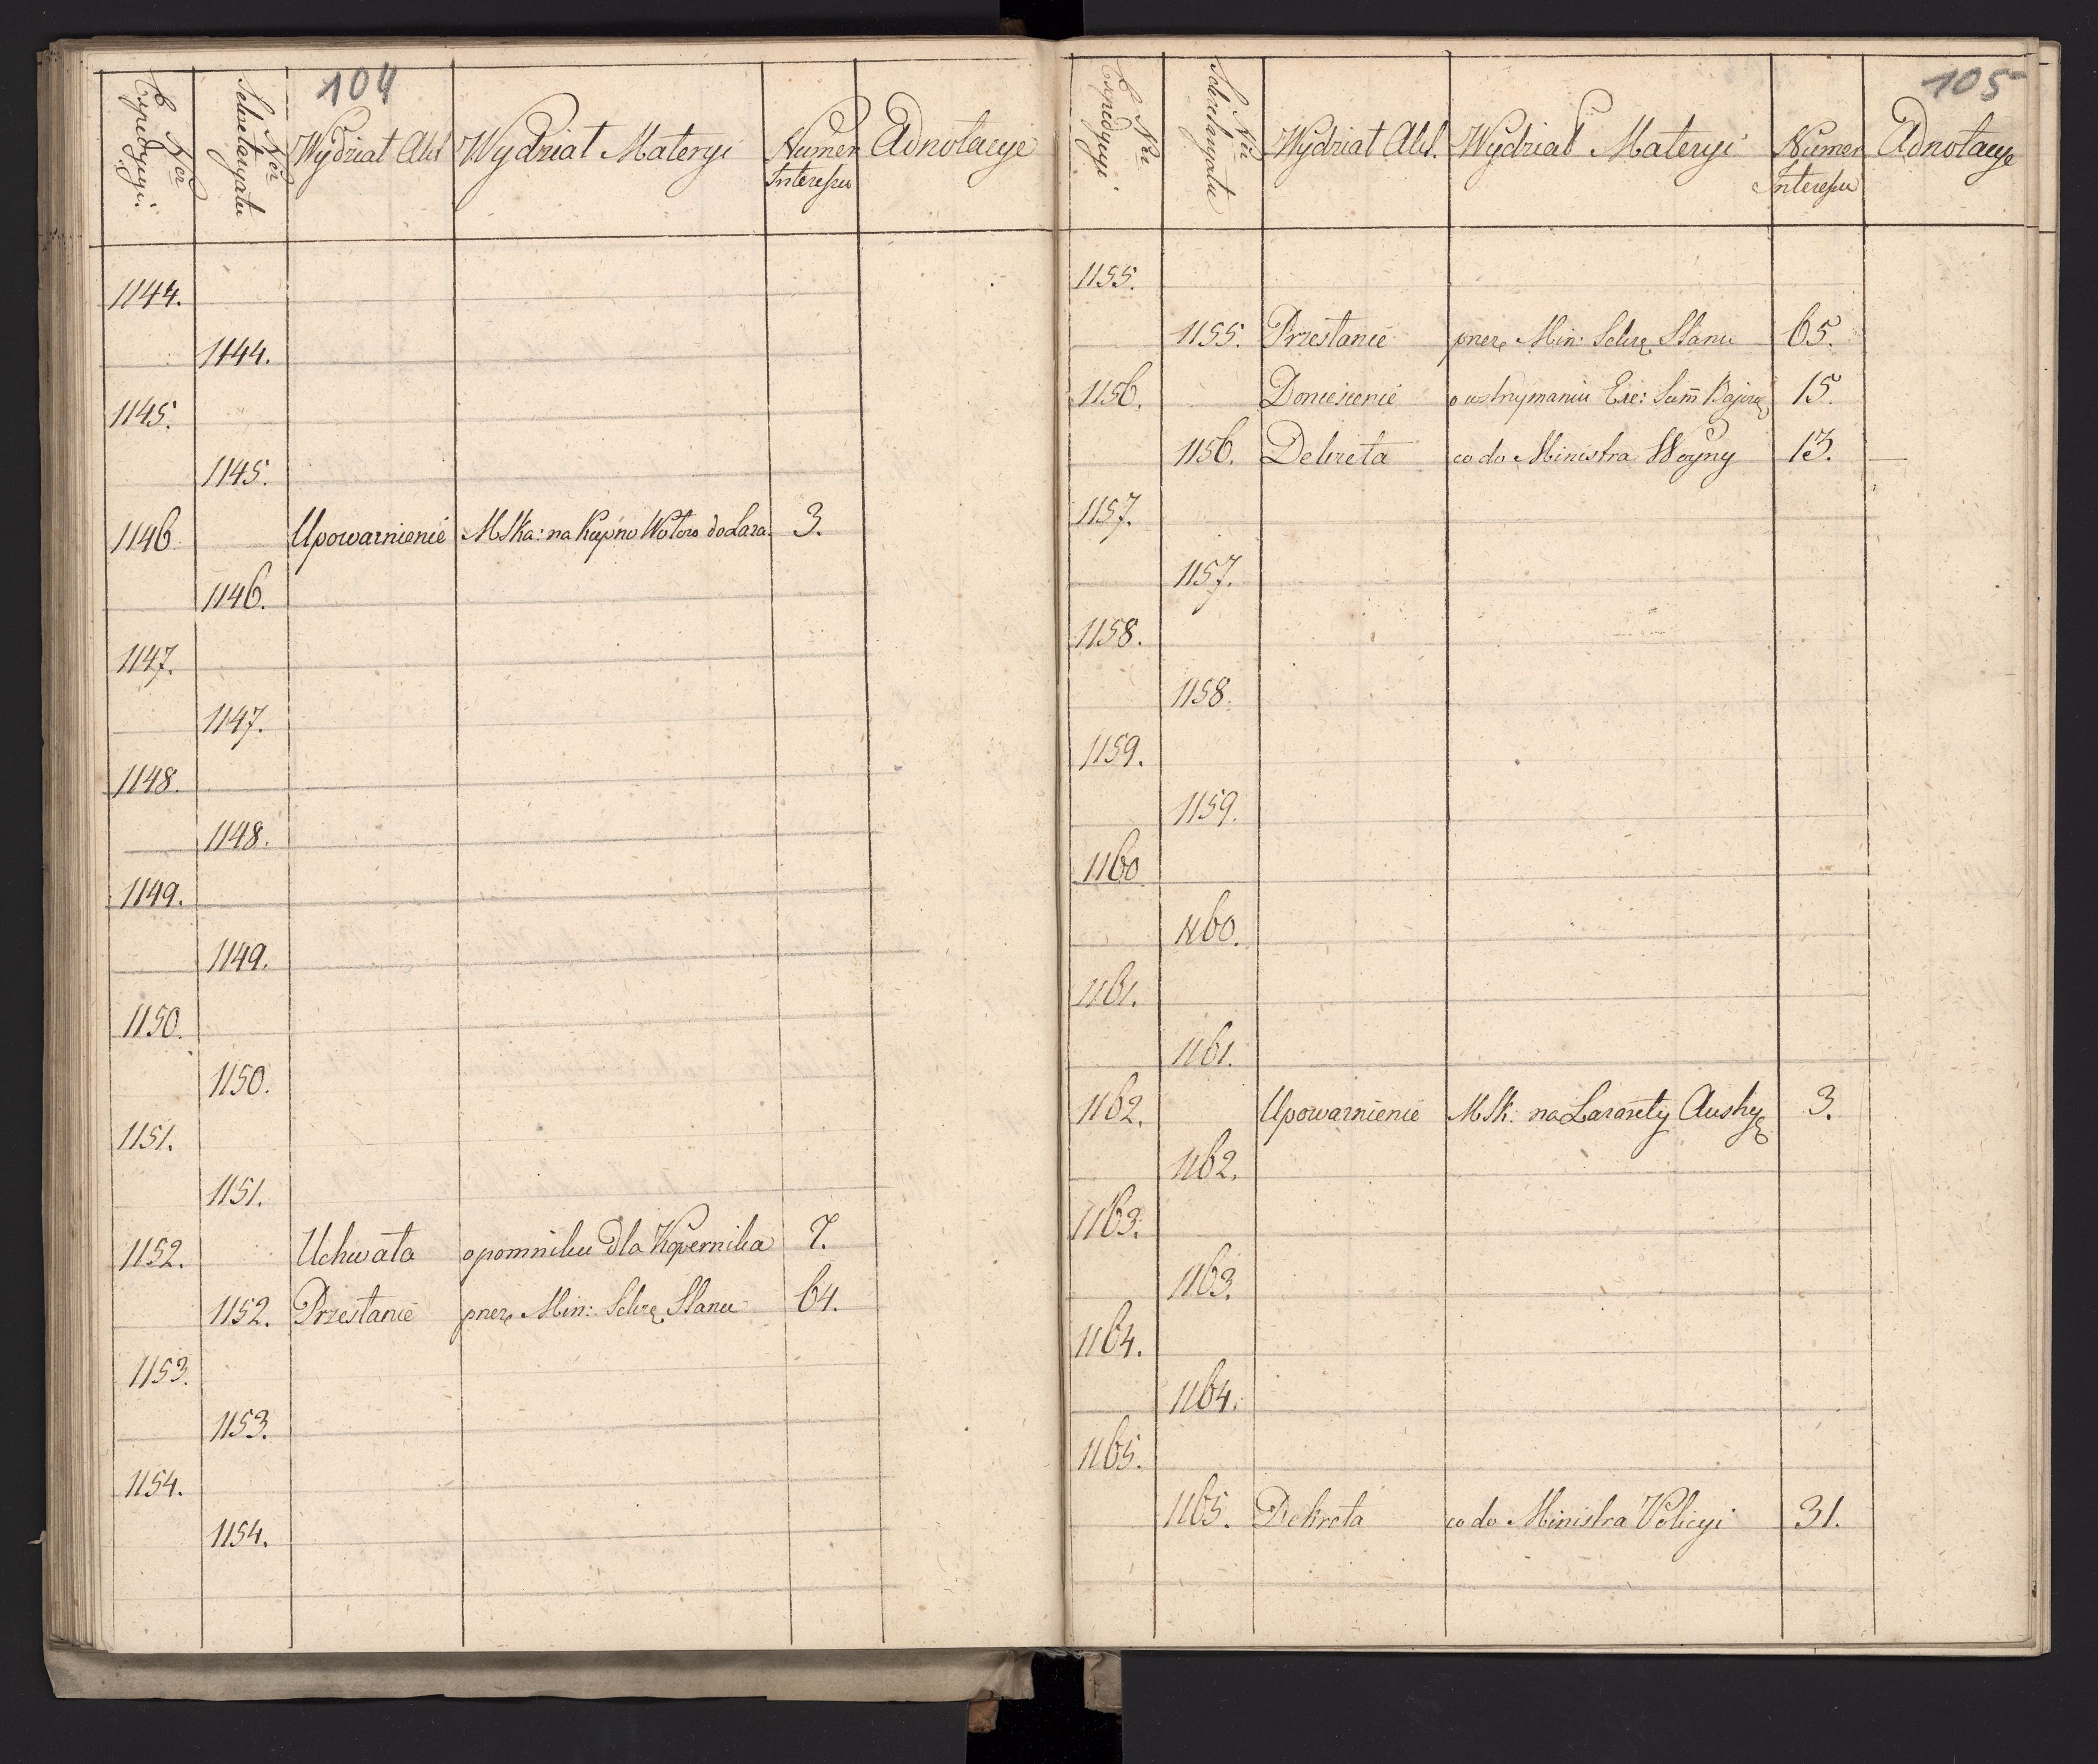 104
Nor Expedycyi.
Nor Sekretaryatu
Wydział Akt
Wydział Materyi
Numer Interesu
Adnotacye
1144.
1144.
1145.
1145.
1146 Upoważnienie MSka: na kupno Wołow do Laza. 3.
1146.
1147.
1147.
1148.
1148.
1149.
1149.
1150.
1150.
1151.
1151.
1152. Uchwała o pomniku dla Kopernika 7.
1152. Przesłanie przez Min: Sekrę Stanu 64.
1153.
1153.
1154.
1154.
105
Nor Expedycyi
Nor Sekretaryatu
Wydział Akt.
Wydział Materyi
Numer Interesu
Adnotacye
1155.
1155. Przesłanie przez Min: Sekrę Stanu 65.
1156. Doniesienie o wstrzymaniu Exe: Sum̄ Bajoń 15.
1156. Dekreta co do Ministra Woyny 13.
1157.
1157.
1158.
1158.
1159.
1159.
1160
1160.
1161.
1161.
1162. Upoważnienie MSk: na Lazarety Austry 3.
1162.
1163.
1163.
1164.
1164.
1165.
1165. Dekreta co do Ministra Policyi 31.